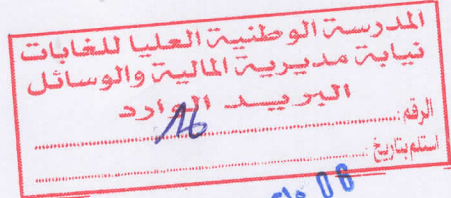 المدرسة الوطنية العليا للغابات
نيابة مديرية المالية والوسائل
البريد الوارد
الرقم: 16
استلم بتاريخ:
08